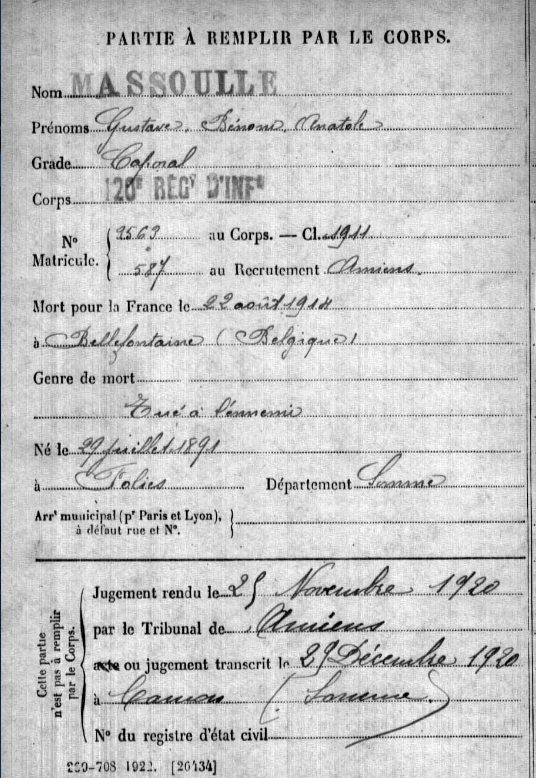 PARTIE À REMPLIR PAR LE CORPS.
Nom MASSOULLE
Prénoms Gustave, Bénoni, Anatole
Grade Caporal
Corps 120e RÉGt D'INFie
No Matricule. 9569 au Corps. — Cl. 1911
587 au Recrutement Amiens.
Mort pour la France le 22 août 1914
à Bellefontaine (Belgique)
Genre de mort
Tué à l'ennemi
Né le 29 juillet 1891
à Folies Département Somme
Arrt municipal (pr Paris et Lyon), à défaut rue et No.
Cette partie n'est pas à remplir par le Corps.
Jugement rendu le 25 Novembre 1920
par le Tribunal de Amiens
acte ou jugement transcrit le 29 Décembre 1920
à Camon (Somme)
No du registre d'état civil
-708 1922. [26434]